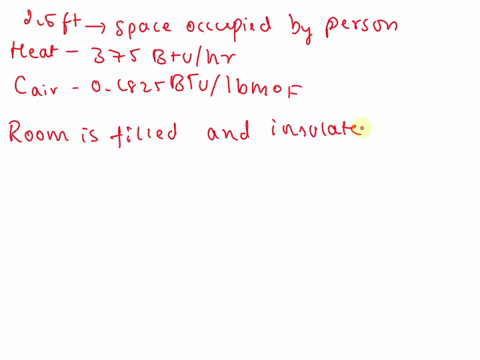 2.5ft → space occupied by person
Heat - 375 Btu/hr
Cair - 0.1825 BTU/lbm°F
Room is filled and insulate